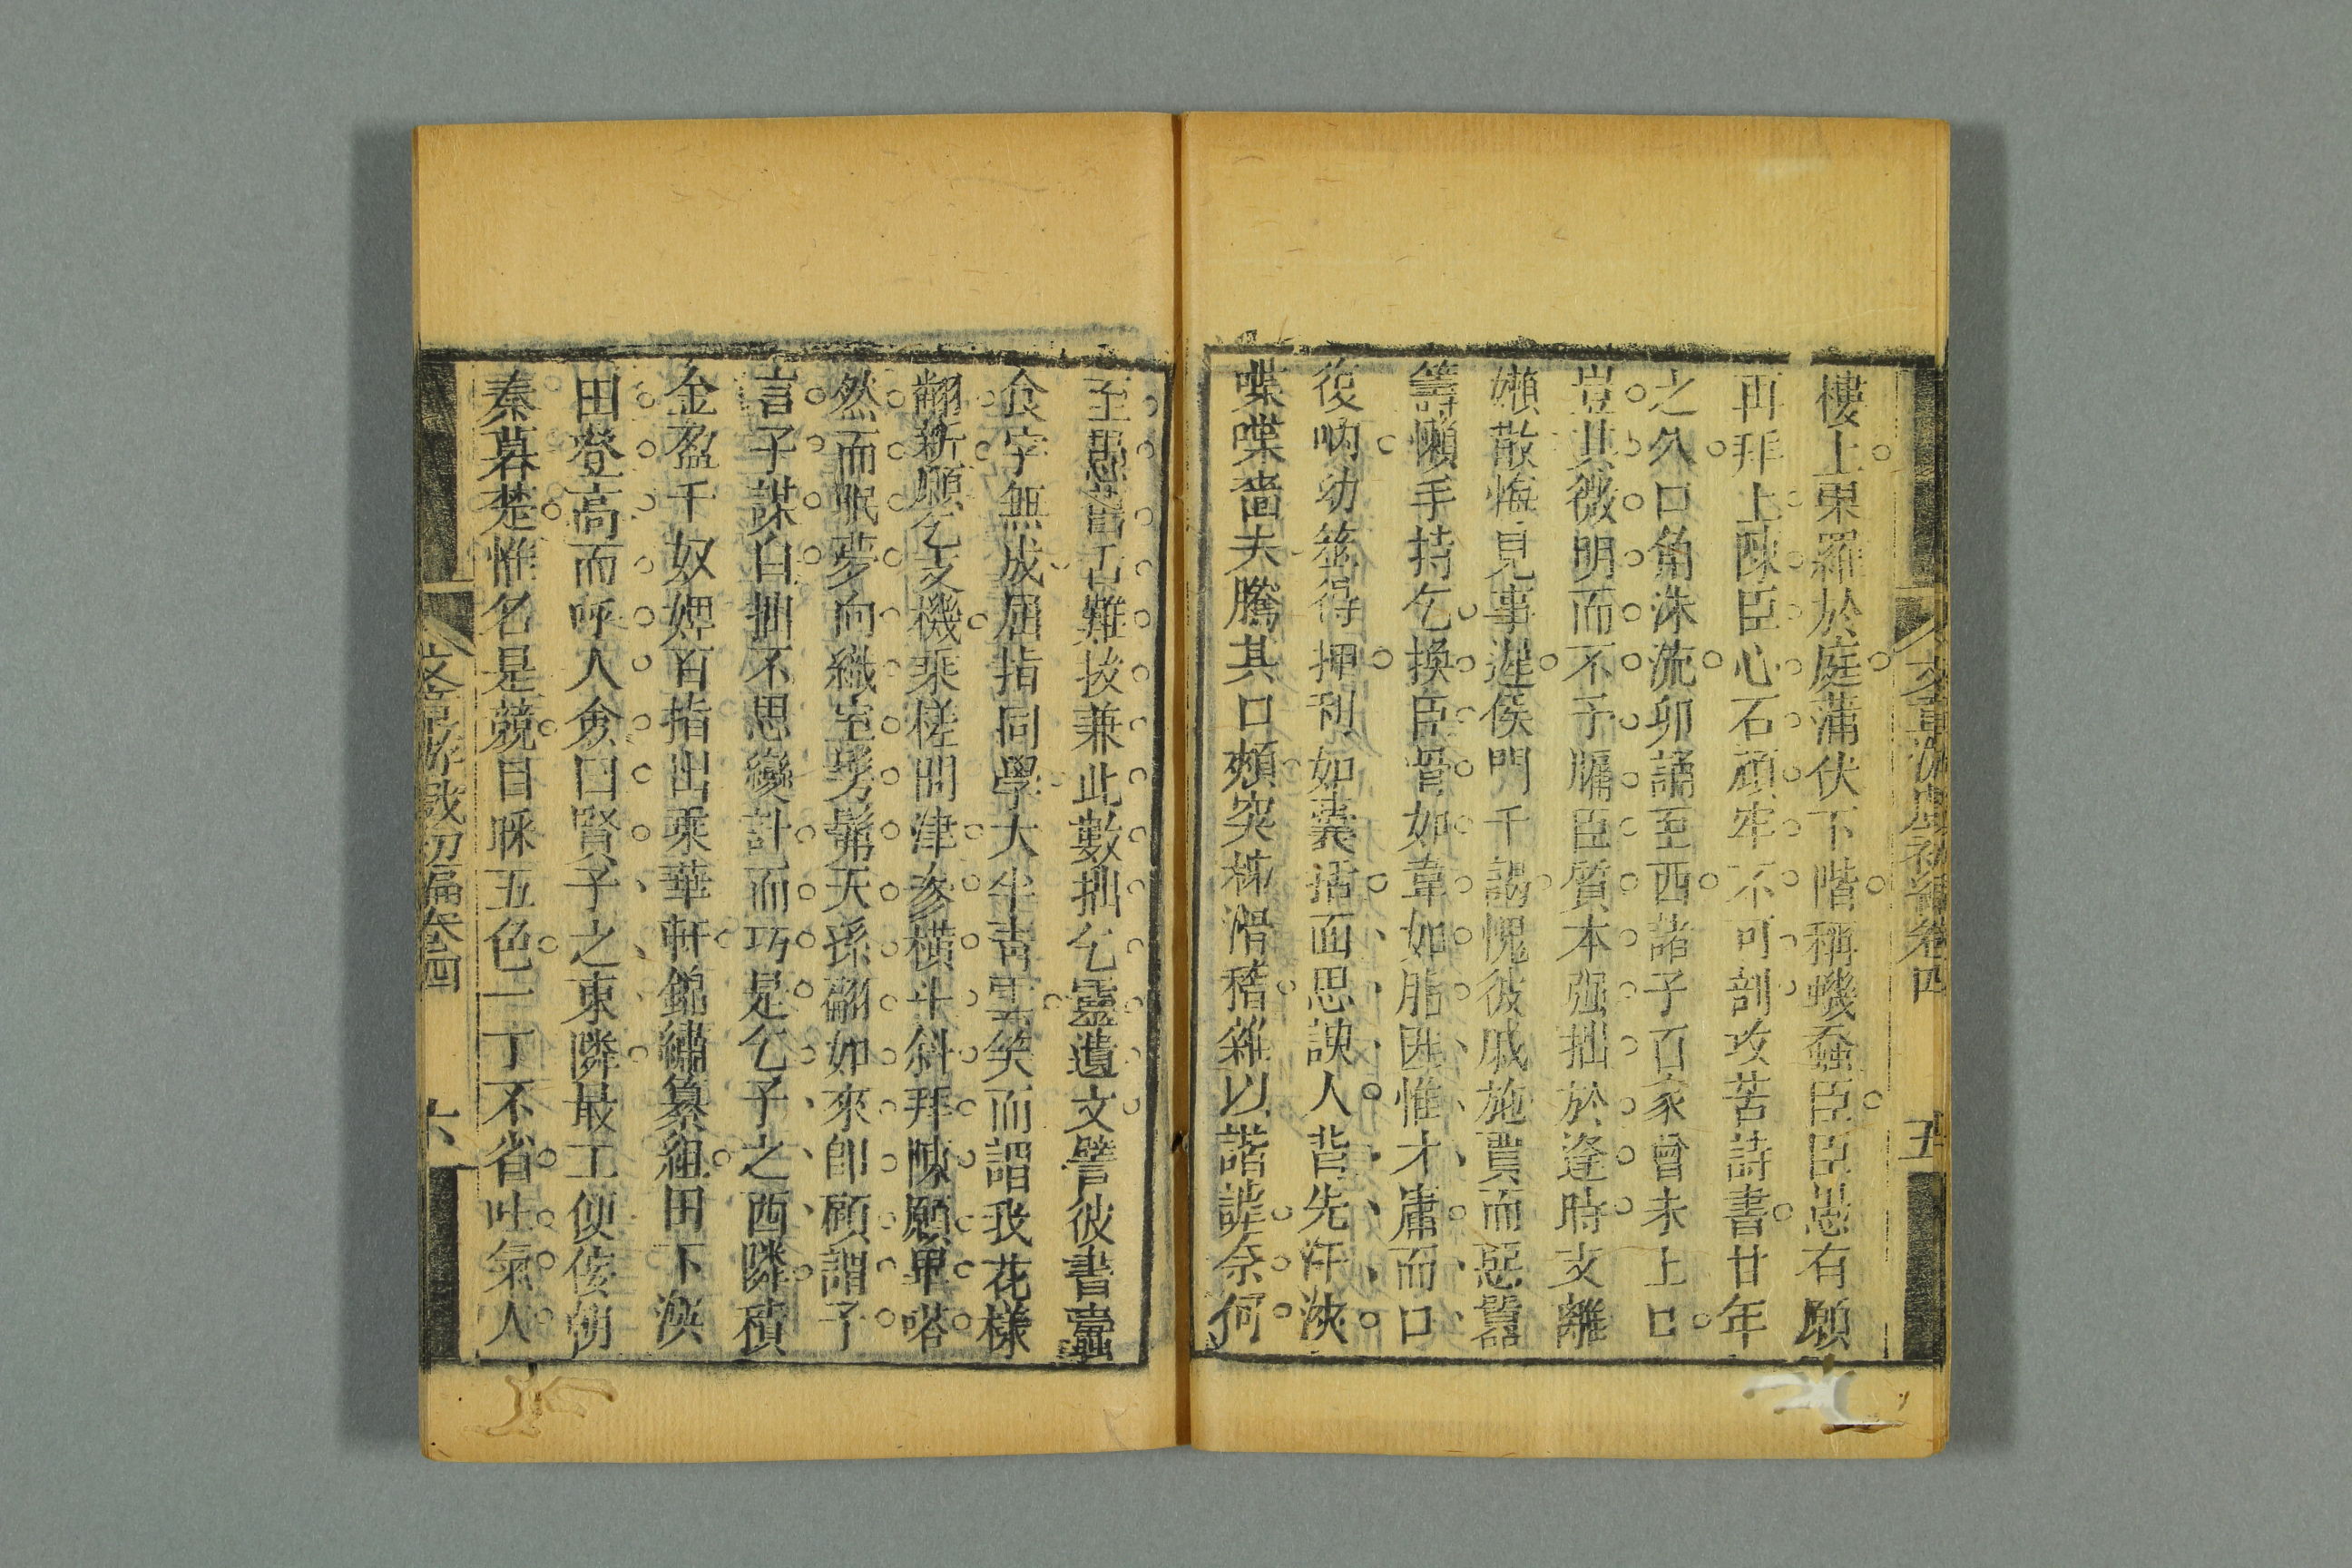 樓上果羅於庭蒲伏下階稱蟣蝨臣臣愚有願
再拜上陳臣心石頑牢不可剖攻苦詩書廿年
之久口角沫流卯誦至酉諸子百家曾未上口
豈其微明而不予牖臣質本强拙於逢時支離
嬾散悔見事遲侯門千謁愧彼戚施賈而惡囂
籌懶手持乞換臣骨如韋如脂匪惟才庸而口
復吶幼筮得押利如囊括面思諛人背先汗浹
喋喋嗇夫騰其口頰突梯滑稽雜以諧謔奈何
至愚舊舌難拔兼此數拙乞靈遺文譬彼書蠹
食字無成屈指同學大半青雲笑而謂我花樣
翻新願乞支機乘槎問津參橫斗斜拜陳願畢嗒
然而眠夢向織室髣髴天孫翩如來卽顧謂予
言子謀自拙不思變計而巧是乞子之西隣積
金盈千奴婢百指出乘華軒錦繡纂組田下潠
田登高而呼人僉曰賢子之東隣最工便佞朝
秦暮楚惟名是競目眯五色一丁不省吐氣人
五
六